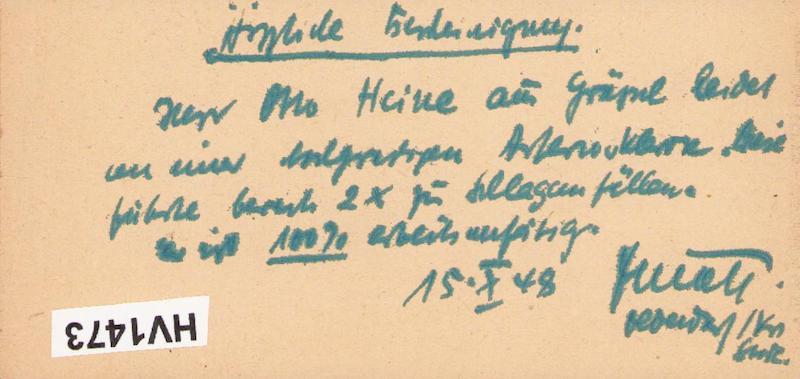 Ärztliche Bescheinigung.
Herr Otto Heine aus Gräpel leidet
an einer hochgradigen Arteriosklerose. Diese
führte bereits 2x zu Schlaganfällen.
Er ist 100% arbeitsunfähig.
15.X 48
HV1473